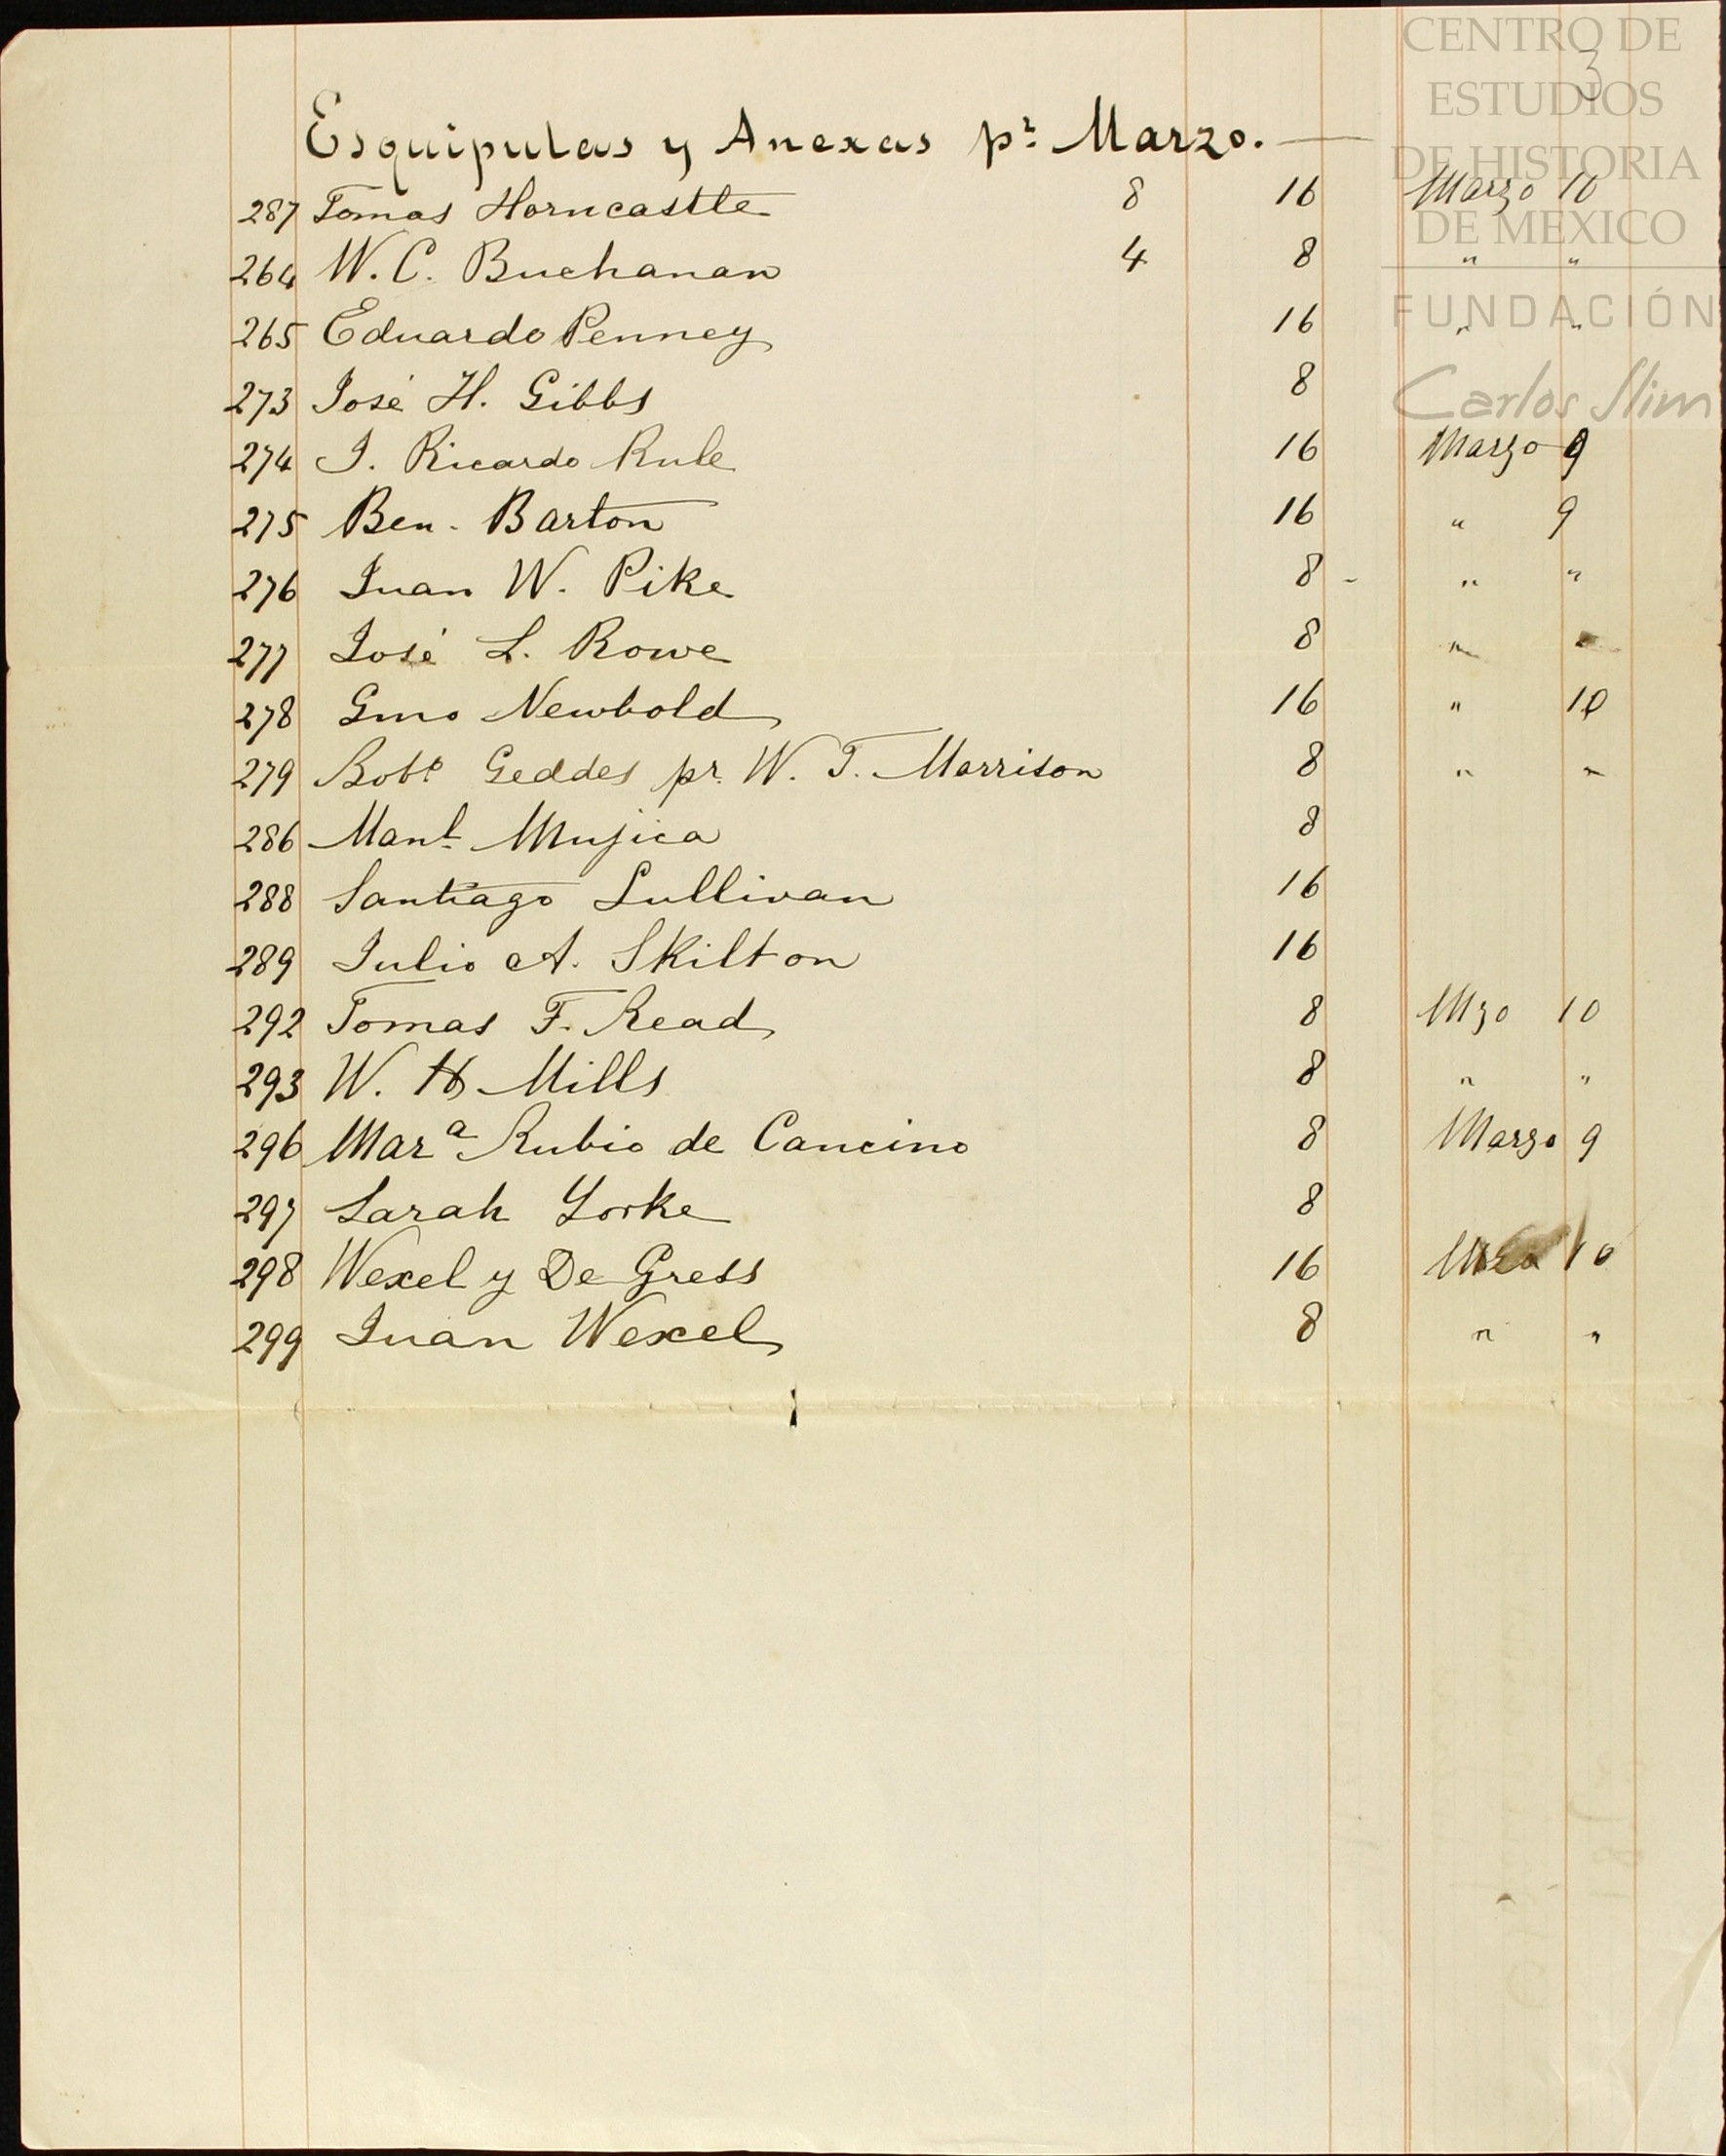 CENTRO DE
ESTUDIOS
DE HISTORIA
DE MEXICO
FUNDACIÓN
Carlos Slim
3
Esquipulas y Anexas pr Marzo.
287 Tomas Horncastle 8 16 Marzo 10
264 W. C. Buchanan 4 8 " "
265 Eduardo Penney 16 " "
273 José H. Gibbs 8
274 J. Ricardo Rule 16 Marzo 9
275 Ben. Barton 16 " 9
276 Juan W. Pike 8 - " "
277 José L. Rowe 8 " "
278 Gmo Newbold 16 " 10
279 Robto Geddes pr. W. T. Morrison 8 " "
286 Manl Mujica 8
288 Santiago Sullivan 16
289 Julio A. Skilton 16
292 Tomas F. Read 8 Mzo 10
293 W. H Mills 8 " "
296 Mara Rubio de Cancino 8 Marzo 9
297 Sarah Yorke 8
298 Wexel y De Gress 16 Mzo 10
299 Juan Wexel 8 " "